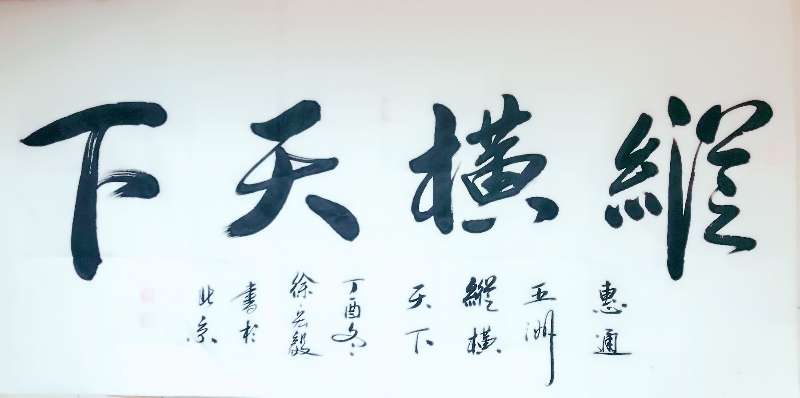 縱橫天下
惠通
亚洲
縱橫
天下
丁酉冬
徐 毅
書於
北京